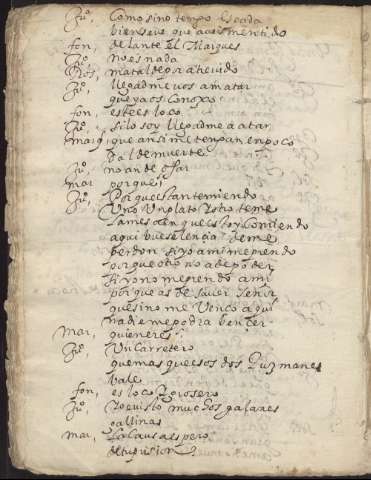 Ju.º como sino tengo espada
bien se ve que aveis mentido
fon, delante el Marques
Ju.º no es nada
matalde por atrevido
Ju.º llegadme vos a matar
que ya os conozco
fon, este es loco
Ju.º si lo soy llegadme a atar
mar, que ansi me tengan en poco
dalde muerte
Ju.º no an de osar
mar porque
Ju.º Porque estan temiendo
Uno Un plato y otro teme
la mesa en que estoy comiendo
aqui bueselencia deme
perdon si yo a mi me prendo
porque otro no a de poder
si yo no me prendo a mi
porque as de saver señor
que sino me Venço aqui
nadie me podra bencer
Mar, quien eres
Ju.º Un carretero
que mas que esos dos Guzmanes
vale
fon, es loco y grosero
Ju.º yo e visto muchos galanes
gallinas
mar, la causa espero
de tu prision